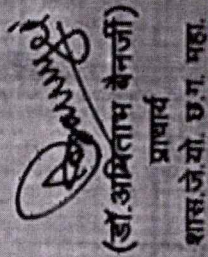 (डॉ.अमिताभ बैनर्जी)
प्राचार्य
शास.जे.यो. छ.ग. महा.